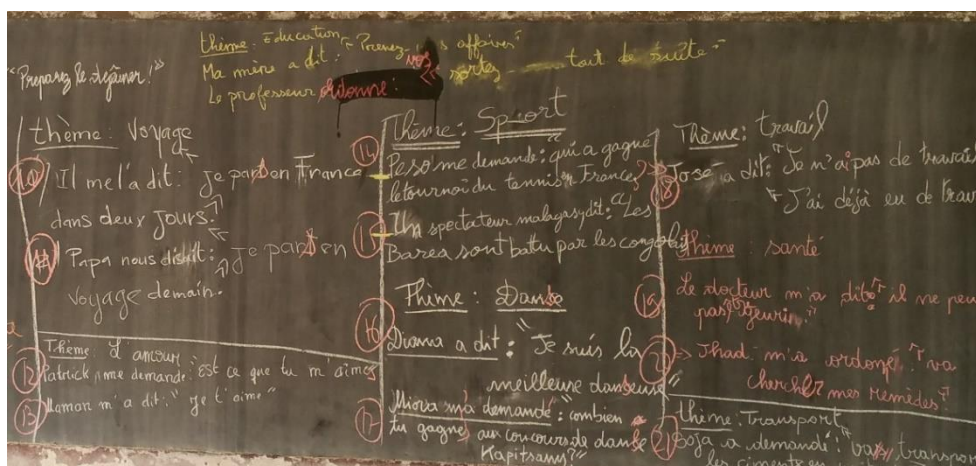 thème: Education
Ma mère a dit: "Prenez vos affaires"
Le professeur ordonne: " sortez tout de suite"
"Preparez le dejeuner!"
thème: Voyage
Il me l'a dit: "Je pars en France
dans deux jours."
11 Papa nous disait: "Je pars en
voyage demain.
Thème: L'amour
12 Patrick me demande: "est ce que tu m'aimes
13 Maman m'a dit: "je t'aime"
Thème: Sport
14 Peso me demande: "qui a gagné
le tournoi du tennis en France?"
15 Un spectateur malagasy dit: "Les
Barea sont battu par les congolais
Thème: Danse
16 Drama a dit: "Je suis la
meilleure danseuse"
17 Miora m'a demandé: "combien
tu gagnes aux concours de danse
Kapitsans?"
Thème: travail
18 Jose a dit: "Je n'ai pas de travail
"J'ai déjà eu de trav
thème: santé
19 Le docteur m'a dit: "il ne peu
pas guerir.
20 Jhad m'a ordonné: "va
chercher mes remèdes!
thème: Transport
21 Soja a demandé: "vas transpor
les ciments